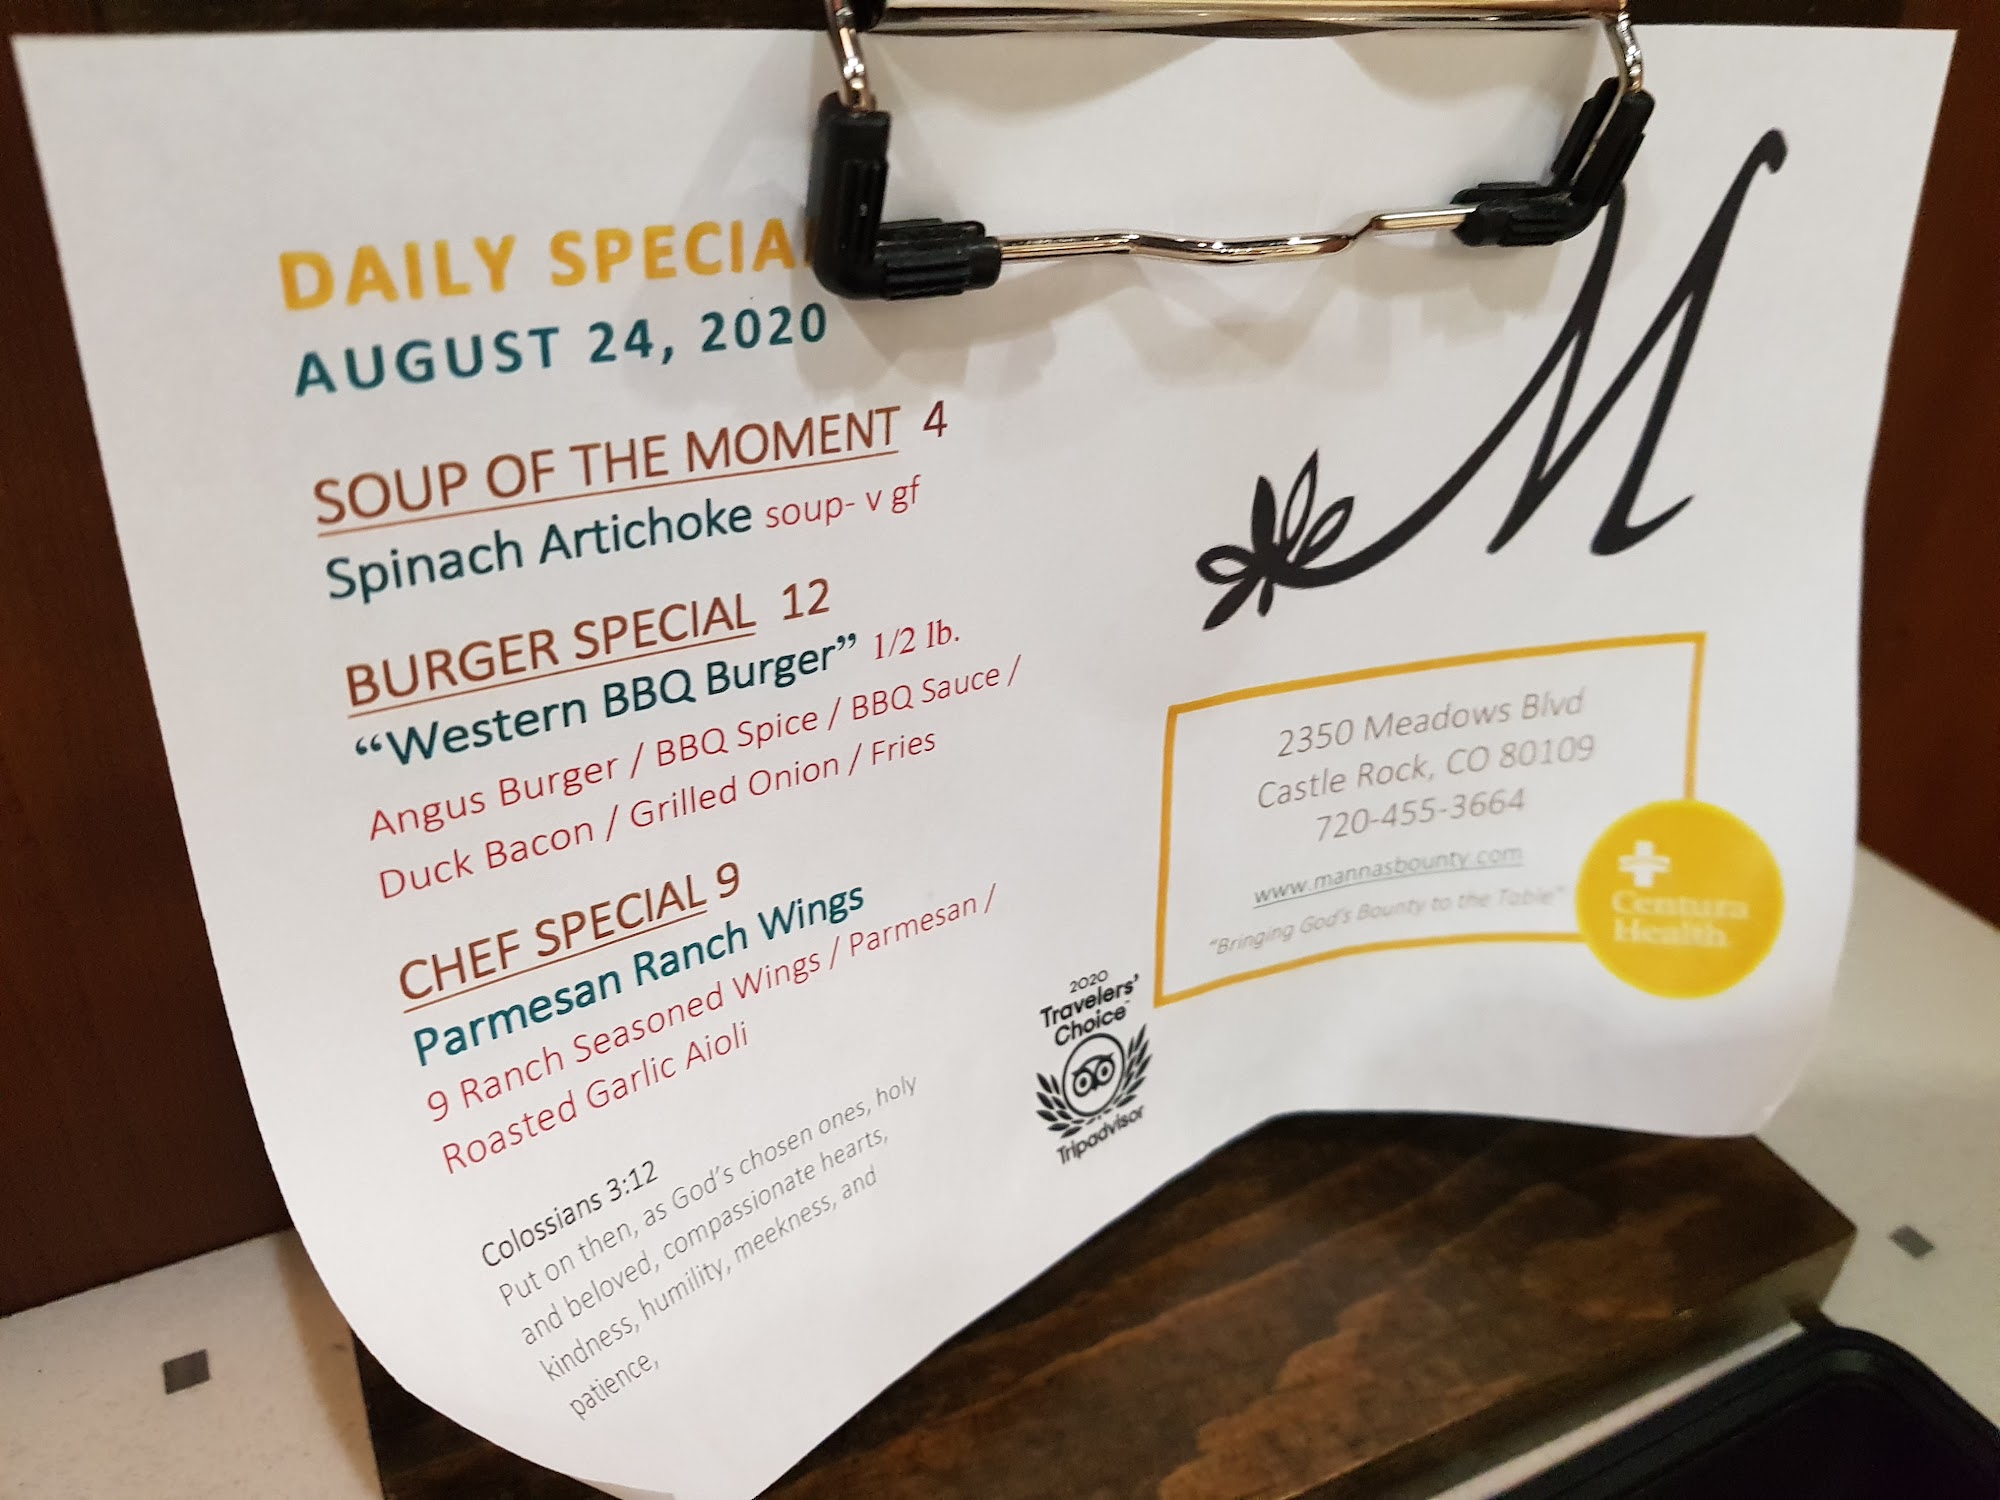 DAILY SPECIA
AUGUST 24, 2020
SOUP OF THE MOMENT 4
Spinach Artichoke soup- v gf
BURGER SPECIAL 12
“Western BBQ Burger” 1/2 lb.
Angus Burger / BBQ Spice / BBQ Sauce /
Duck Bacon / Grilled Onion / Fries
CHEF SPECIAL 9
Parmesan Ranch Wings
9 Ranch Seasoned Wings / Parmesan /
Roasted Garlic Aioli
Colossians 3:12
Put on then, as God’s chosen ones, holy
and beloved, compassionate hearts,
kindness, humility, meekness, and
patience,
2020
Travelers’
Choice™
Tripadvisor
M
2350 Meadows Blvd
Castle Rock, CO 80109
720-455-3664
www.mannasbounty.com
“Bringing God’s Bounty to the Table”
Centura
Health